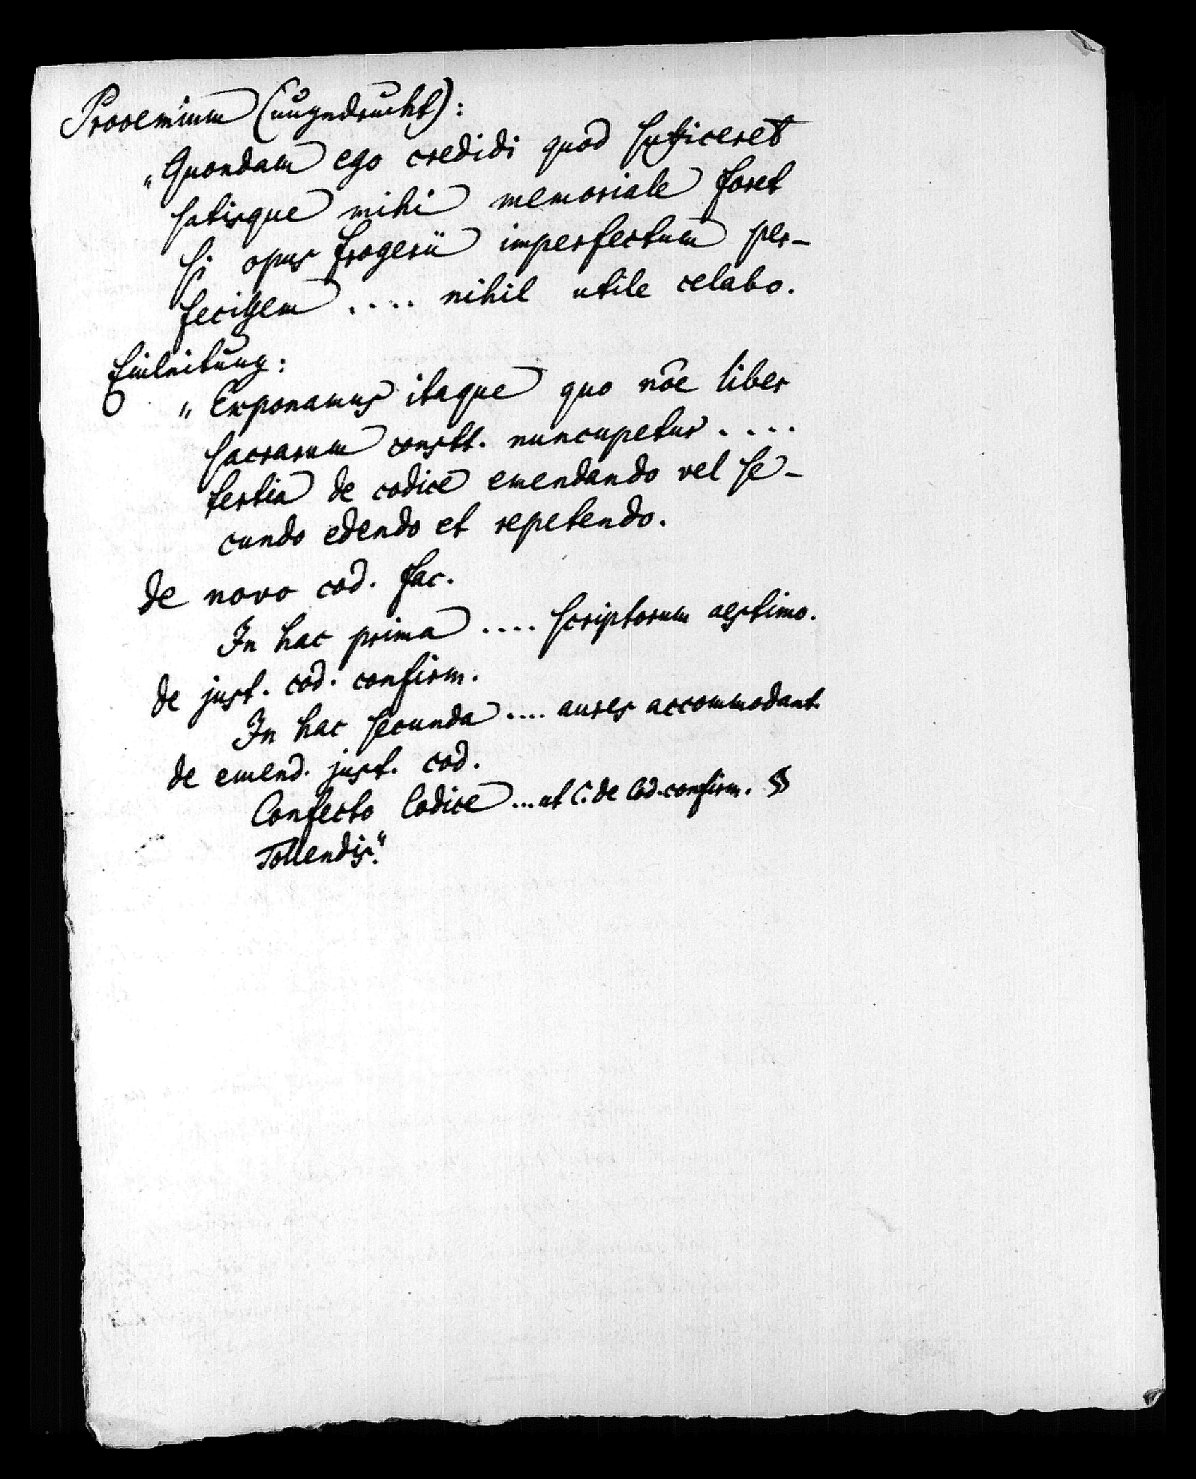 Prooemium (ungedruckt):
„Quondam ego credidi quod sufficeret
satisque mihi memoriale foret
si opus frogerii imperfectum per-
fecissem .... nihil utile celabo.
Einleitung:
„Exponamus itaque quo nōe liber
sacrarum constt. nuncupetur ....
tertia de codice emendando vel se-
cundo edendo et repetendo.
de novo cod. fac.
In hac prima .... scriptorum aestimo.
de just. cod. confirm.
In hac secunda .... aures accommodant.
de emend. just. cod.
Confecto Codice ... ut C. de Cod. confirm. §
Tollendis."